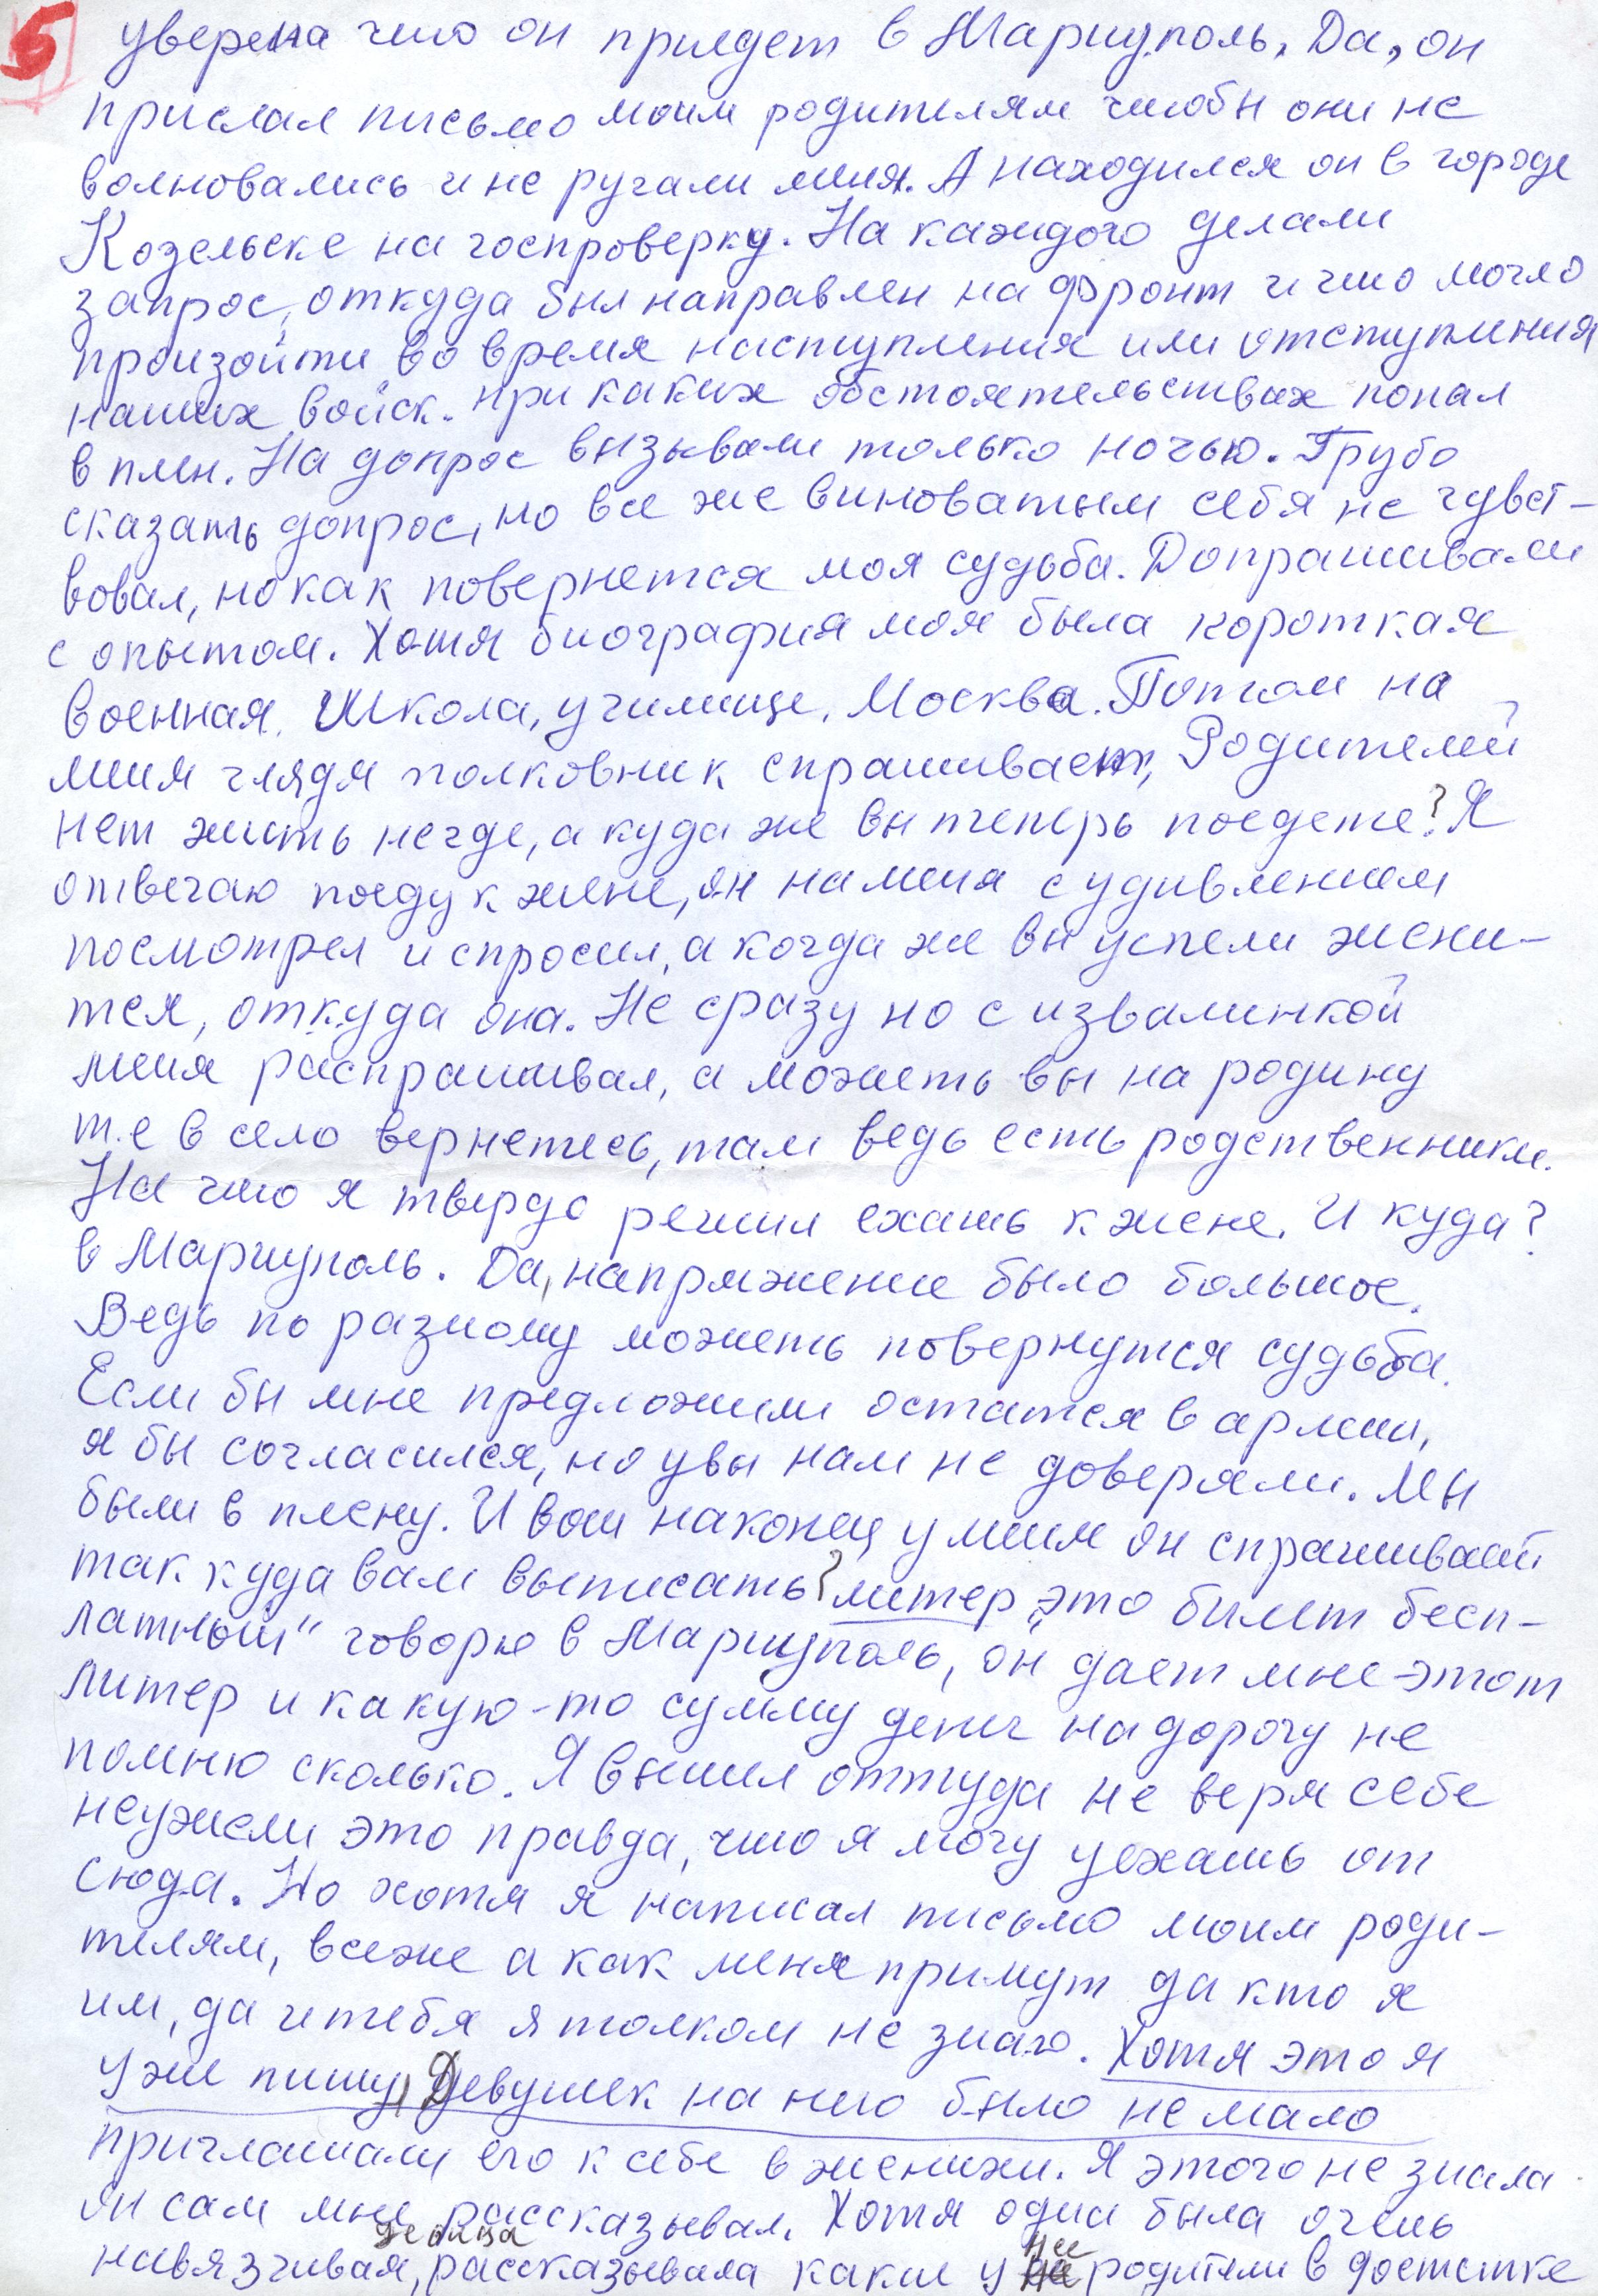 5
уверена что он приедет в Мариуполь, Да, он
прислал письмо моим родителям чтобы они не
волновались и не ругали меня. А находился он в городе
Козельске на госпроверку. На каждого делали
запрос, откуда был направлен на фронт и что могло
произойти во время наступления или отступления
наших войск. При каких обстоятельствах попал
в плен. На допрос вызывали только ночью. Грубо
сказать допрос, но все же виноватым себя не чувст-
вовал, но как повернется моя судьба. Допрашивали
с опытом. Хотя биография моя была короткая
военная. Школа, училище, Москва. Потом на
меня глядя полковник спрашивает, Родителей
нет жить негде, а куда же вы теперь поедете? Я
отвечаю поеду к жене, он на меня с удивлением
посмотрел и спросил, а когда же вы успели жени-
тся, откуда она. Не сразу но с извалинкой
меня распрашивал, а можеть вы на родину
т.е в село вернетесь, там ведь есть родственники.
На что я твердо решил ехать к жене. И куда?
в Мариуполь. Да, напряжение было большое.
Ведь по разному можеть повернутся судьба.
Если бы мне предложили остатся в армии,
я бы согласился, но увы нам не доверяли. Мы
были в плену. И вот наконец у меня он спрашивает
так куда вам выписать? литер "это билет бесп-
латный" говорю в Мариуполь, он дает мне этот
литер и какую-то сумму денег на дорогу не
помню сколько. Я вышел оттуда не веря себе
неужели это правда, что я могу уехать от
сюда. Но хотя я написал письмо моим роди-
телям, всеже а как меня примут да кто я
им, да и тебя я толком не знаю. Хотя это я
уже пишу, Девушек на него было не мало
приглашали его к себе в женихи. Я этого не знала
он сам мне рассказывал. Хотя одна была очень
девица
нее
навязчивая, рассказывала какие у родители в достатке